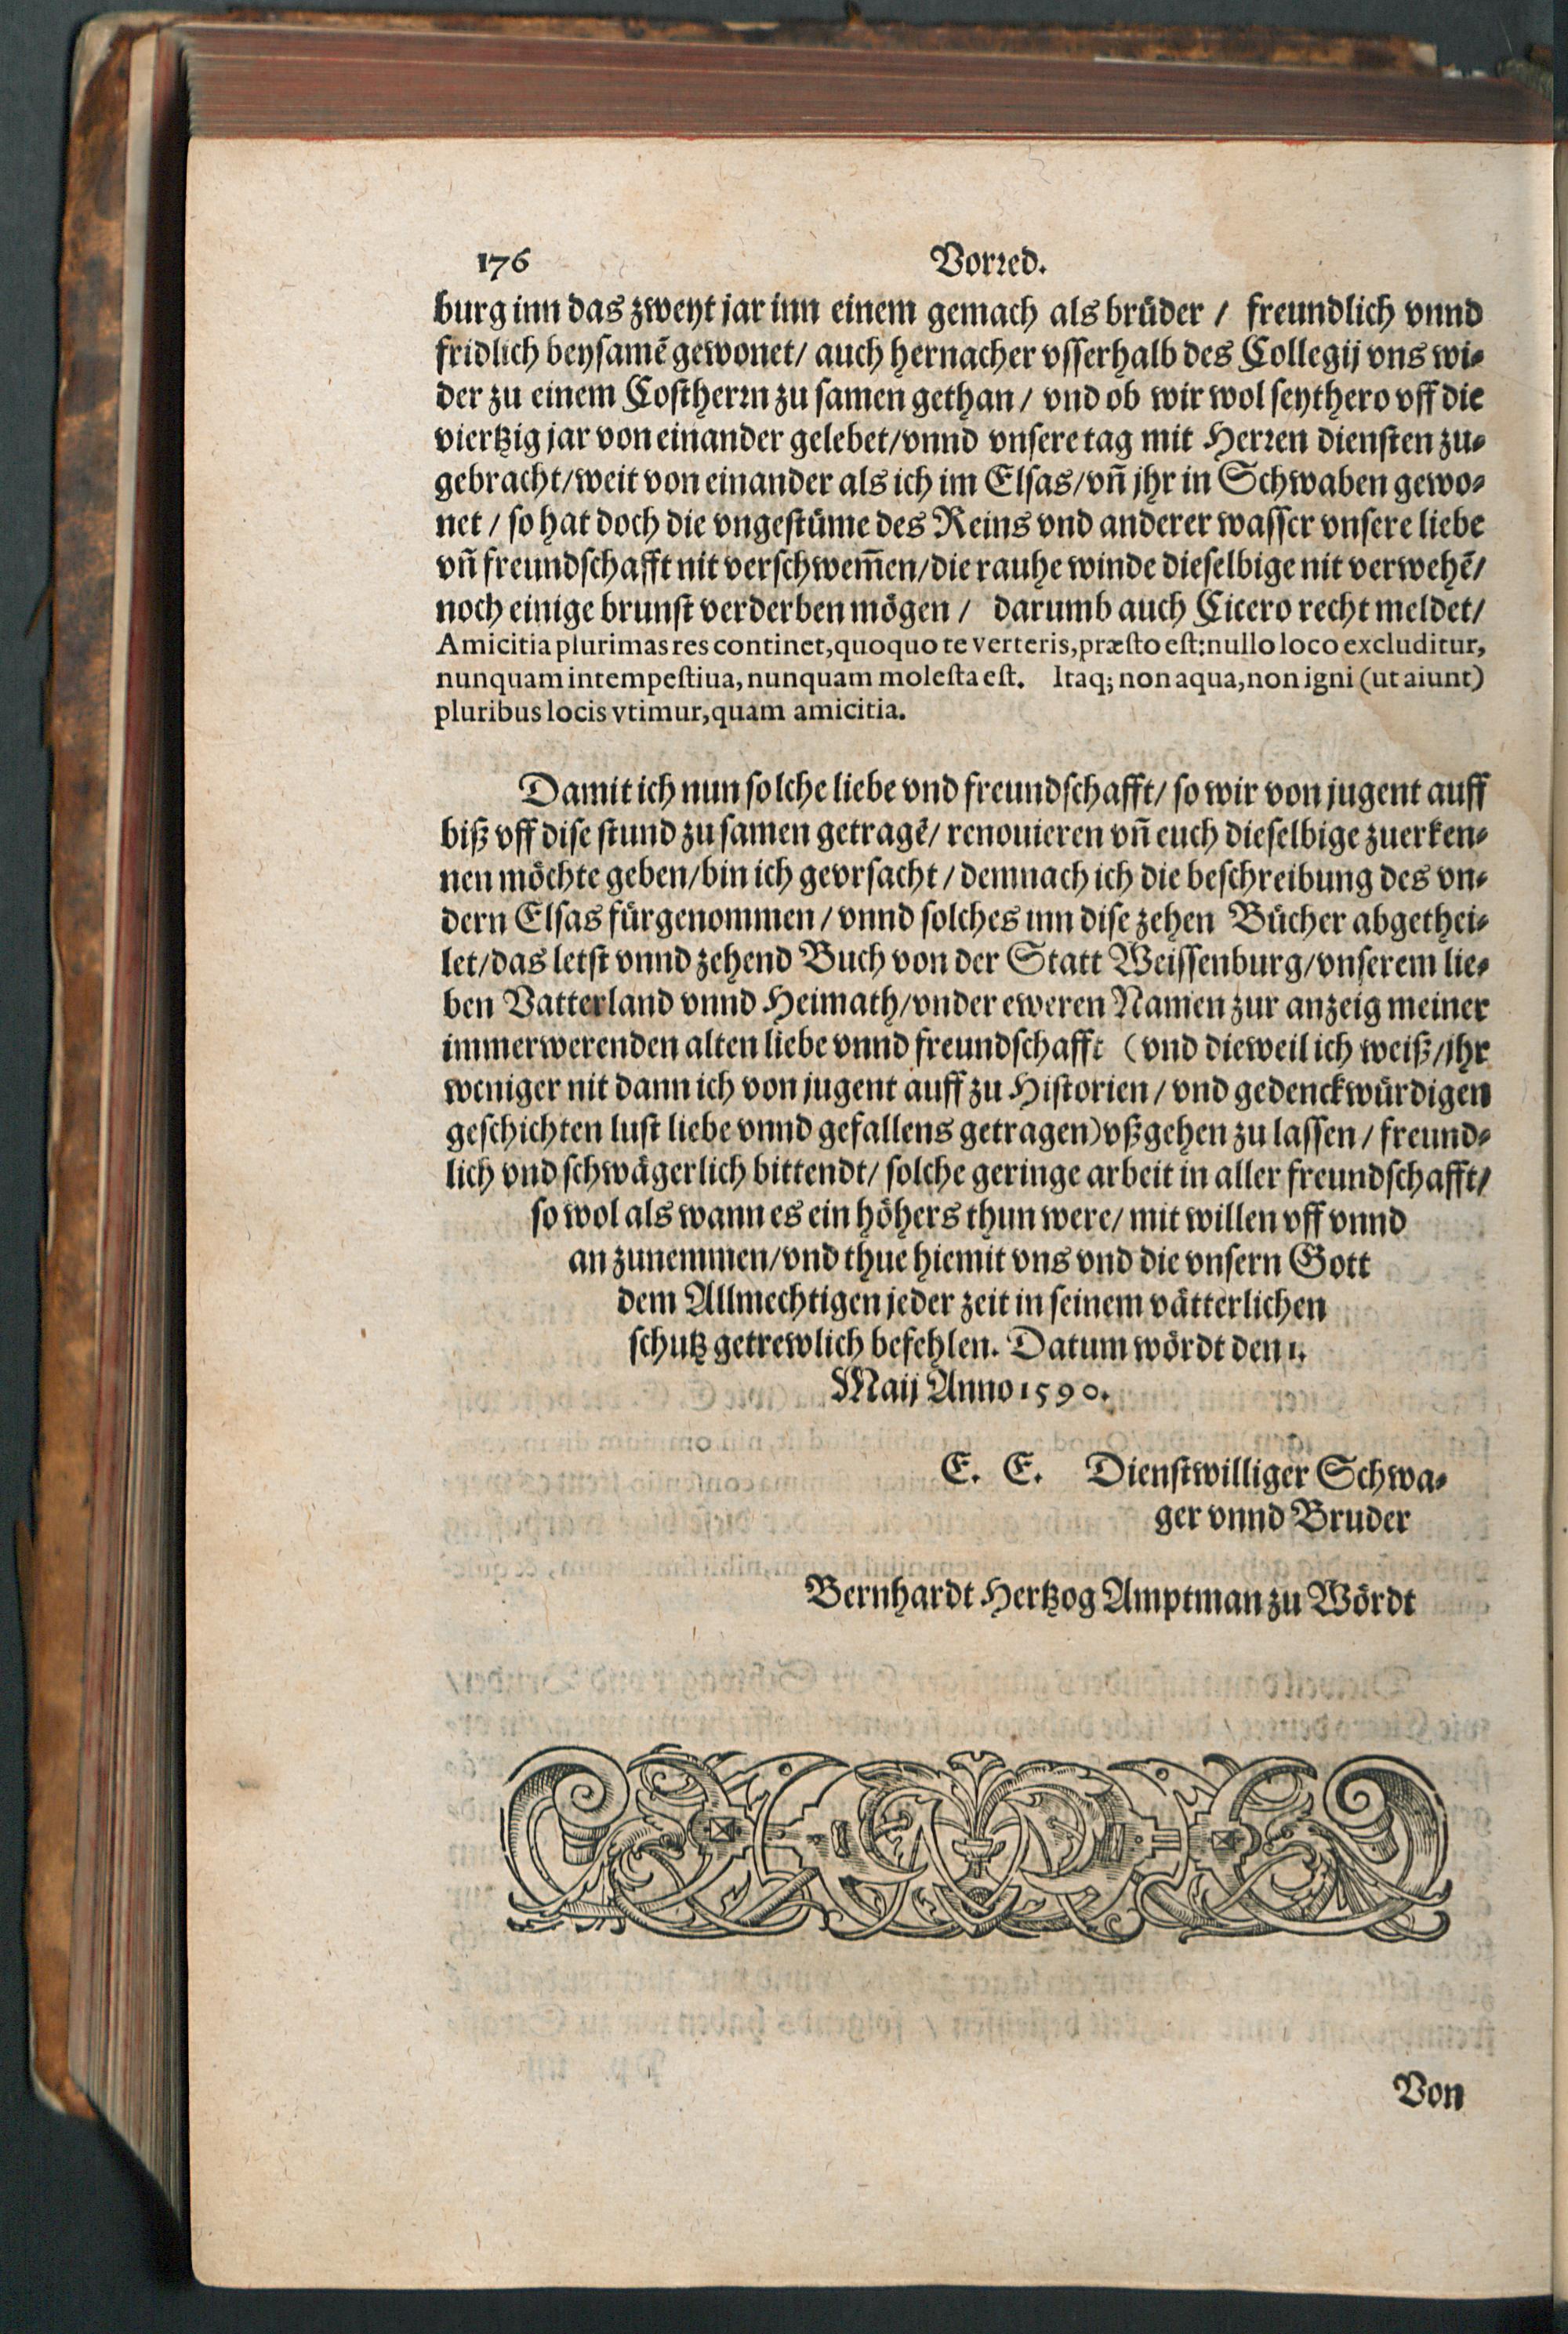 176 Vorred.
burg inn das zweyt jar inn einem gemach als brüder / freundlich vnnd
fridlich beysamē gewonet / auch hernacher vsserhalb des Collegij vns wi-
der zu einem Costherrn zu samen gethan / vnd ob wir wol seythero vff die
viertzig jar von einander gelebet / vnnd vnsere tag mit Herren diensten zu-
gebracht / weit von einander als ich im Elsas / vn̄ jhr in Schwaben gewo-
net / so hat doch die vngestüme des Reins vnd anderer wasser vnsere liebe
vn̄ freundschafft nit verschwem̄en / die rauhe winde dieselbige nit verwehē /
noch einige brunst verderben mögen / darumb auch Cicero recht meldet /
Amicitia plurimas res continet, quoquo te verteris, præsto est: nullo loco excluditur,
nunquam intempestiua, nunquam molesta est. Itaq; non aqua, non igni (ut aiunt)
pluribus locis vtimur, quam amicitia.
Damit ich nun solche liebe vnd freundschafft / so wir von jugent auff
biß vff dise stund zu samen getragē / renouieren vn̄ euch dieselbige zuerken-
nen möchte geben / bin ich gevrsacht / demnach ich die beschreibung des vn-
dern Elsas fürgenommen / vnnd solches inn dise zehen Bücher abgethei-
let / das letst vnnd zehend Buch von der Statt Weissenburg / vnserem lie-
ben Vatterland vnnd Heimath / vnder eweren Namen zur anzeig meiner
immerwerenden alten liebe vnnd freundschafft (vnd dieweil ich weiß / jhr
weniger nit dann ich von jugent auff zu Historien / vnd gedenckwürdigen
geschichten lust liebe vnnd gefallens getragen) vßgehen zu lassen / freund-
lich vnd schwägerlich bittendt / solche geringe arbeit in aller freundschafft /
so wol als wann es ein höhers thun were / mit willen vff vnnd
an zunemmen / vnd thue hiemit vns vnd die vnsern Gott
dem Allmechtigen jeder zeit in seinem vätterlichen
schutz getrewlich befehlen. Datum wördt den 1.
Maij Anno 1590.
E. E. Dienstwilliger Schwa-
ger vnnd Bruder
Bernhardt Hertzog Amptman zu Wördt
Von